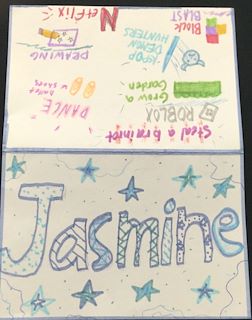 Netflix
Block
BLAST
KPOP
DEMON
HUNTERS
DRAWING
Grow a
Garden
Ballet
shoes
DANCE
ROBLOX
Steal a brainrot
Jasmine